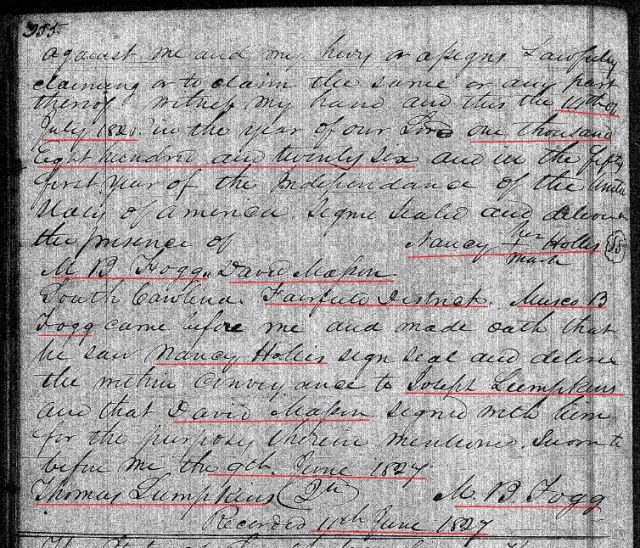 355
against me and my heirs or assigns Lawfully
claiming or to claim the same or any part
thereof witness my hand and this the
July 1826 in the year of our Lord one thousand
Eight hundred and twenty six and in the fifty
first year of the Independance of the United
States of america. Signe Sealed and deliver
the presence of Nancy her + mark Holles
M B Fogg, David Mason
South Carolina. Fairfield District. Moses B
Fogg came before me and made oath that
he saw Nancy Holles sign seal and deliver
the within Convey ance to Joseph Lumpkins
and that David Mason signed with him
for the purpose therein mentioned. Sworn to
before me the 9th June 1827
Thomas Lumpkins M. B Fogg
Recorded 11th June 1827
The State of